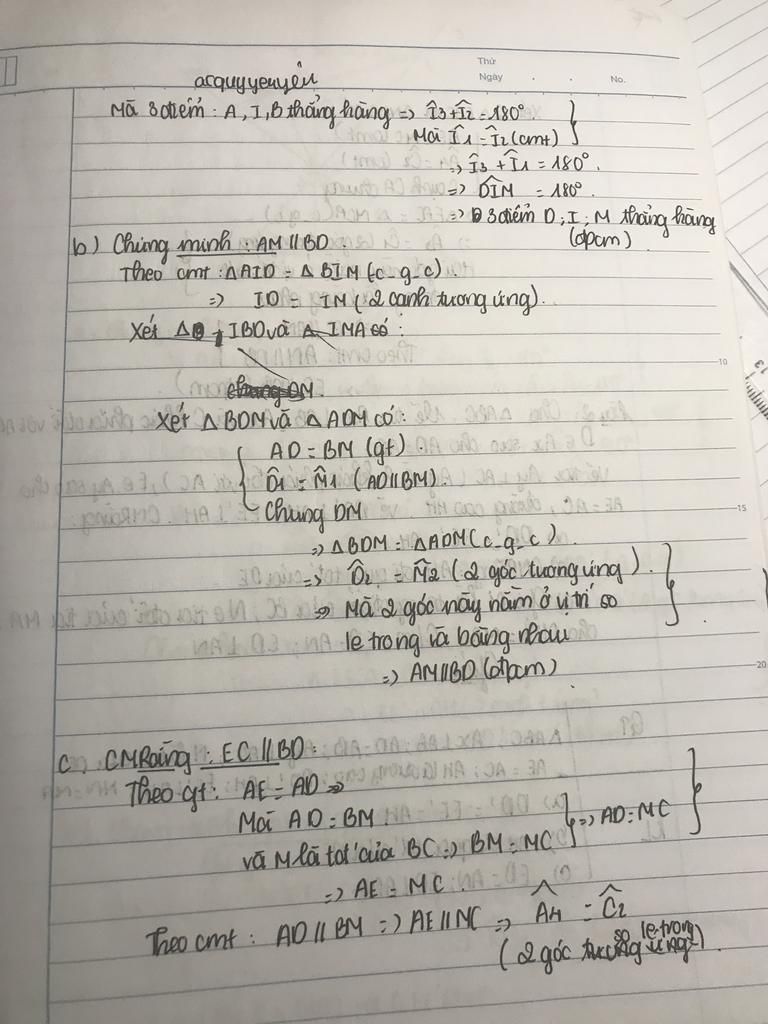 Thứ
Ngày . . No.
acquyyenyêu
Mà 3 điểm : A, I, B thẳng hàng => Î3 + Î2 = 180°
Mà Î1 = Î2 (cmt)
=> Î3 + Î1 = 180°
=> DÎM = 180°
=> 3 điểm D; I; M thẳng hàng
(đpcm)
b) Chứng minh : AM // BD .
Theo cmt : ΔAID = ΔBIM (c_g_c) .
=> ID = IM (2 cạnh tương ứng) .
Xét Δ IBD và Δ IMA có :
chung DM
Xét Δ BDM và Δ ADM có :
AD = BM (gt) .
D̂1 = M̂1 (AD // BM) .
Chung DM
=> ΔBDM = ΔADM (c_g_c) .
=> D̂2 = M̂2 (2 góc tương ứng) .
=> Mà 2 góc này nằm ở vị trí so
le trong và bằng nhau
=> AM // BD (đpcm)
10
15
20
13
c, CMRằng : EC // BD :
Theo gt : AE = AD =>
Mà AD = BM
và M là tđ' của BC => BM = MC
=> AD = MC
=> AE = MC .
Theo cmt : AD // BM => AE // MC => Â4 = Ĉ2
(2 góc so le trong)